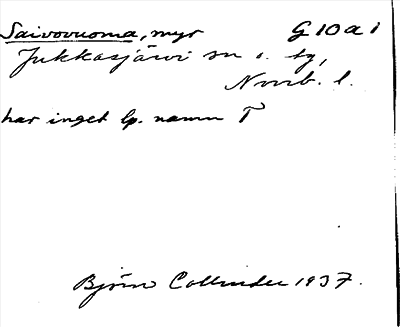 Saivovuoma, myr G 10 a 1
Jukkasjärvi sn o. tg,
Norrb. l.
har inget lp. namn T
Björn Collinder 1937.